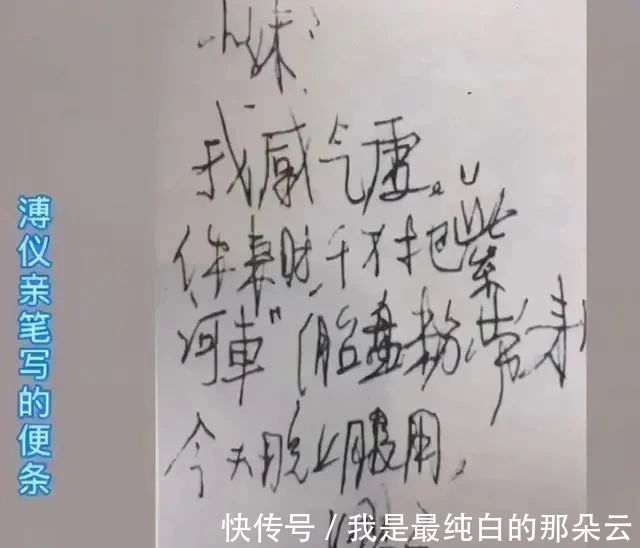 小妹：
我感气虚。
你来时，千万把“紫
河車”（胎盘粉）带来，
今天晚上服用，
溥仪亲笔写的便条
快传号/我是最纯白的那朵云